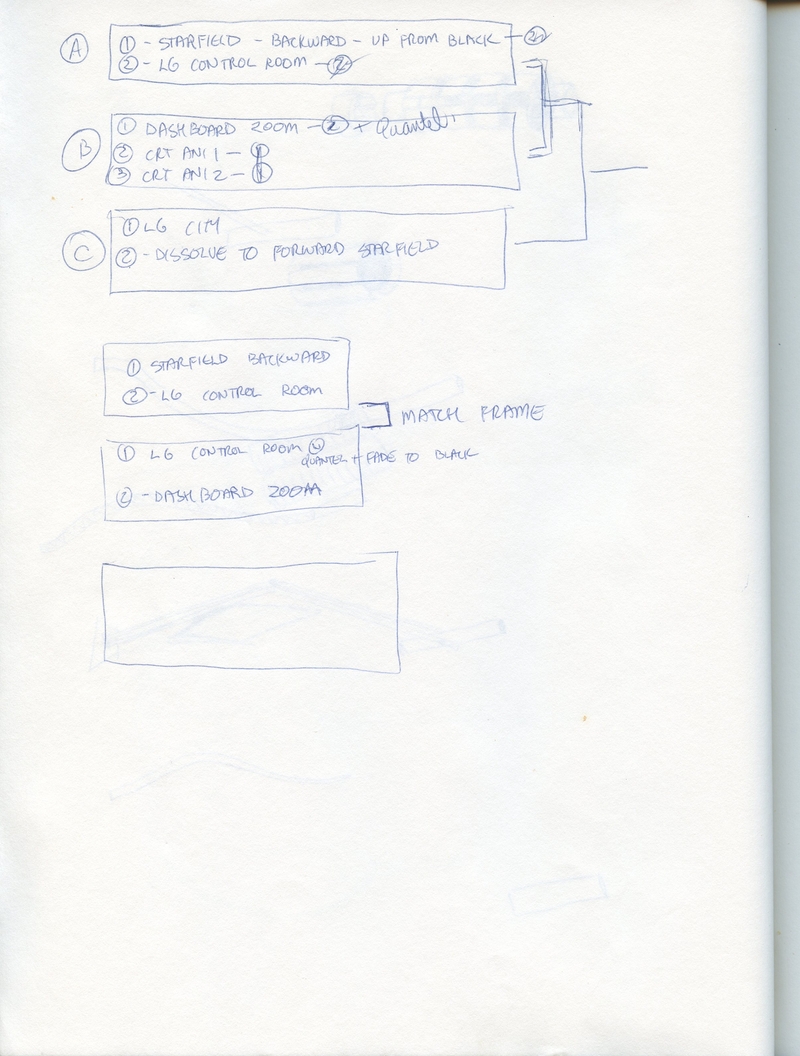 A
① - STARFIELD - BACKWARD - UP FROM BLACK - ②
② - LG CONTROL ROOM - ②
B
① DASHBOARD ZOOM - ② + Quantel
② CRT ANI 1 - ①
③ CRT ANI 2 - ①
C
① LG CITY
② - DISSOLVE TO FORWARD STARFIELD
① STARFIELD BACKWARD
② - LG CONTROL ROOM
MATCH FRAME
① LG CONTROL ROOM
QUANTEL + FADE TO BLACK
② - DASHBOARD ZOOM